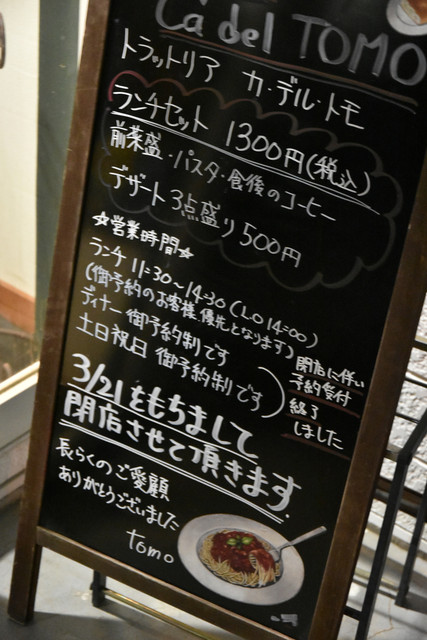 Ca del TOMO
トラットリア カ・デル・トモ
ランチセット 1300円(税込)
前菜盛・パスタ・食後のコーヒー
デザート3点盛り500円
☆営業時間☆
ランチ 11:30~14:30(LO 14:00)
(御予約のお客様優先となります)
ディナー御予約制です
土日祝日 御予約制です
閉店に伴い
予約受付
終了
しました
3/21をもちまして
閉店させて頂きます
長らくのご愛顧
ありがとうございました
tomo